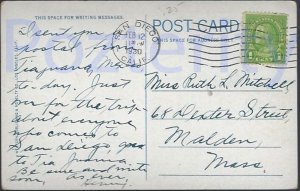 THIS SPACE FOR WRITING MESSAGES.
POST CARD
THIS SPACE FOR ADDRESS ONLY
SAN DIEGO
FEB 12
1930
CALIF.
I sent you
postal from
Tiajuana Mex
to-day. Just
her for the trip
about everyone
who comes to
San Diego, goes
to Tia Juana.
Be sure and write
soon, as ever,
Miss Ruth L. Mitchell,
68 Dexter Street,
Malden,
Mass.